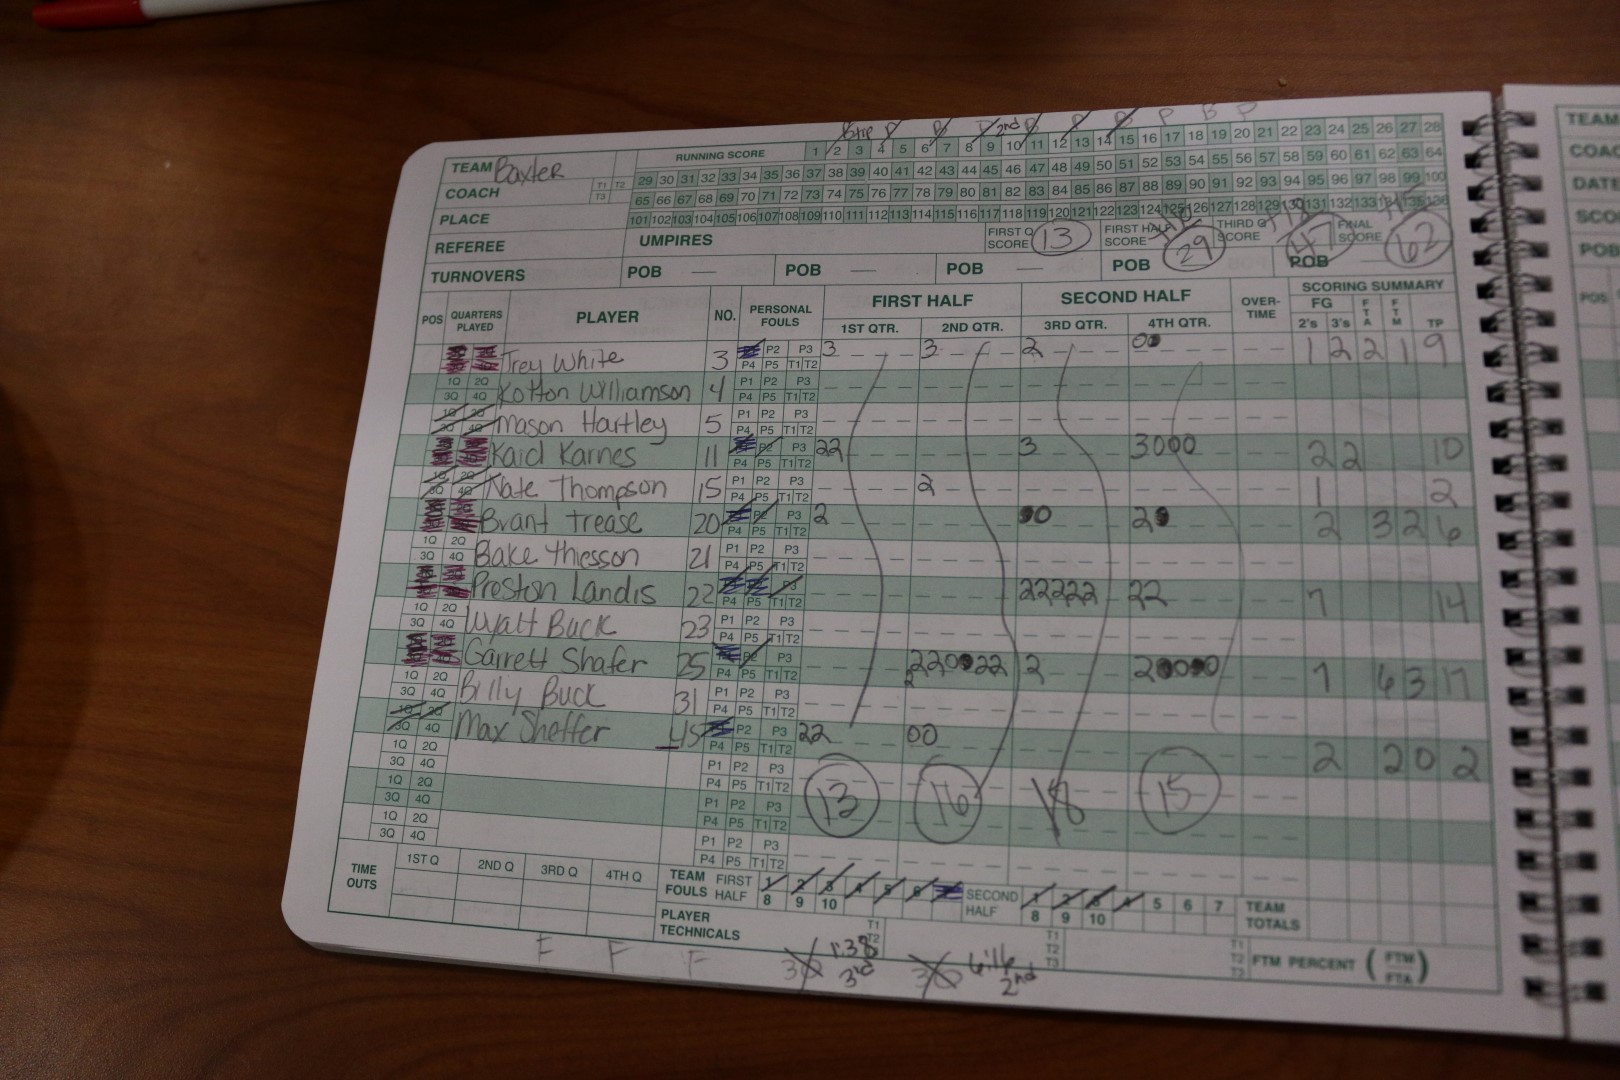 TEAM Baxter
RUNNING SCORE 1 2 3 4 5 6 7 8 9 10 11 12 13 14 15 16 17 18 19 20 21 22 23 24 25 26 27 28
COACH T1 T2 T3 29 30 31 32 33 34 35 36 37 38 39 40 41 42 43 44 45 46 47 48 49 50 51 52 53 54 55 56 57 58 59 60 61 62 63 64
65 66 67 68 69 70 71 72 73 74 75 76 77 78 79 80 81 82 83 84 85 86 87 88 89 90 91 92 93 94 95 96 97 98 99 100
PLACE 101 102 103 104 105 106 107 108 109 110 111 112 113 114 115 116 117 118 119 120 121 122 123 124 125 126 127 128 129 130 131 132 133 134 135 136
REFEREE UMPIRES FIRST Q SCORE 13 FIRST HALF SCORE 29 THIRD Q SCORE 47 FINAL SCORE 62
TURNOVERS POB POB POB POB POB
POS QUARTERS PLAYED PLAYER NO. PERSONAL FOULS FIRST HALF SECOND HALF OVER-TIME SCORING SUMMARY
1ST QTR. 2ND QTR. 3RD QTR. 4TH QTR. FG 2's 3's FTA FTM TP
Trey White 3 P2 P3 P4 P5 T1 T2 3 3 2 00 1 2 2 1 9
1Q 2Q 3Q 4Q Kotton Williamson 4 P1 P2 P3 P4 P5 T1 T2
1Q 2Q 3Q 4Q Mason Hartley 5 P1 P2 P3 P4 P5 T1 T2
Kaid Karnes 11 P2 P3 P4 P5 T1 T2 22 3 3000 2 2 10
1Q 2Q 3Q 4Q Nate Thompson 15 P1 P2 P3 P4 P5 T1 T2 2 1 2
Brant Trease 20 P2 P3 P4 P5 T1 T2 2 00 20 2 3 2 6
1Q 2Q 3Q 4Q Bake Thiesson 21 P1 P2 P3 P4 P5 T1 T2
Preston Landis 22 P3 P4 P5 T1 T2 22222 22 7 14
1Q 2Q 3Q 4Q Wyatt Buck 23 P1 P2 P3 P4 P5 T1 T2
Garrett Shafer 25 P2 P3 P4 P5 T1 T2 220022 2 2 20000 7 6 3 17
1Q 2Q 3Q 4Q Billy Buck 31 P1 P2 P3 P4 P5 T1 T2
1Q 2Q 3Q 4Q Max Sheffer 45 P2 P3 P4 P5 T1 T2 22 00 2 2 0 2
1Q 2Q 3Q 4Q P1 P2 P3 P4 P5 T1 T2 13 16 18 15
1Q 2Q 3Q 4Q P1 P2 P3 P4 P5 T1 T2
1Q 2Q 3Q 4Q P1 P2 P3 P4 P5 T1 T2
TIME OUTS 1ST Q 2ND Q 3RD Q 4TH Q TEAM FOULS FIRST HALF 1 2 3 4 5 6 8 9 10 SECOND HALF 1 2 3 4 5 6 7 8 9 10 TEAM TOTALS
PLAYER TECHNICALS T1 T2 T1 T2 T3 T1 T2 T3 FTM PERCENT ( FTM FTA )
F F F 30 1:38 3rd 30 2nd
TEAM
COAC
DATE
SCO
POB
POS